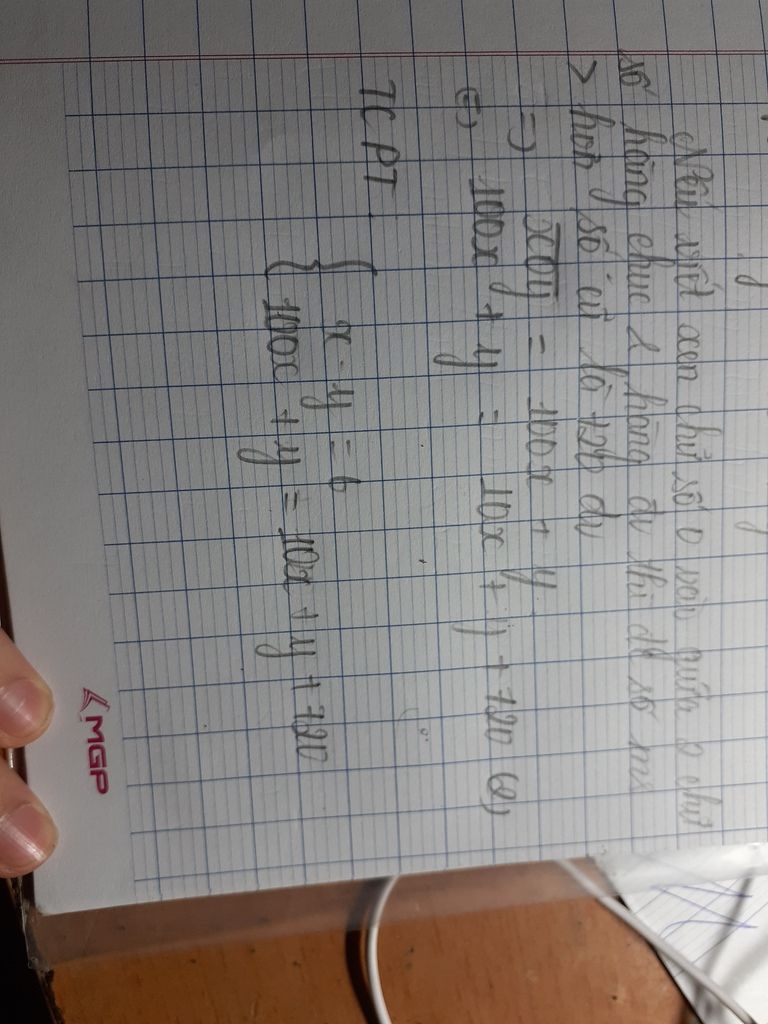 Nếu viết xen chữ số 0 vào giữa 2 chữ
số hàng chục & hàng đv thì đc số ms
> hơn số cũ là 720 đv
=> xoy = 100x + y
(=) 100x + y = 10x + y + 720 (2)
TC PT
{ x - y = 6
{ 100x + y = 10x + y + 720
MGP